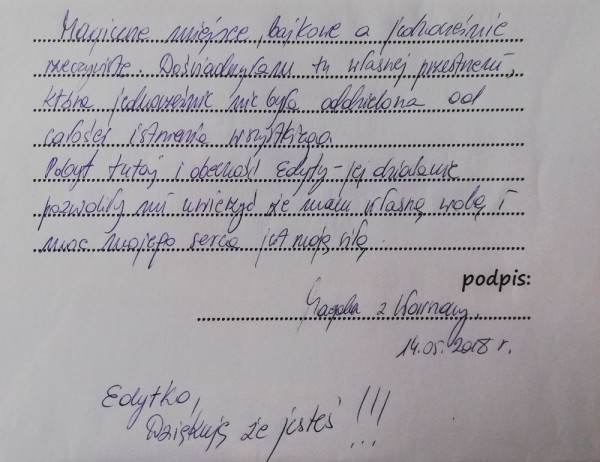 Magiczne miejsce, bajkowe a jednocześnie
rzeczywiste. Doświadczyłam tu własnej przestrzeni,
która jednocześnie nie była oddzielona od
całości istnienia wszystkiego
Pobyt tutaj i obecność Edyty - jej działanie
pozwoliły mi uwierzyć że mam własną wolę i
moc mojego serca jest moją siłą.
podpis:
z
14.05.2018 r.
Edytko,
Dziękuję że jesteś !!!